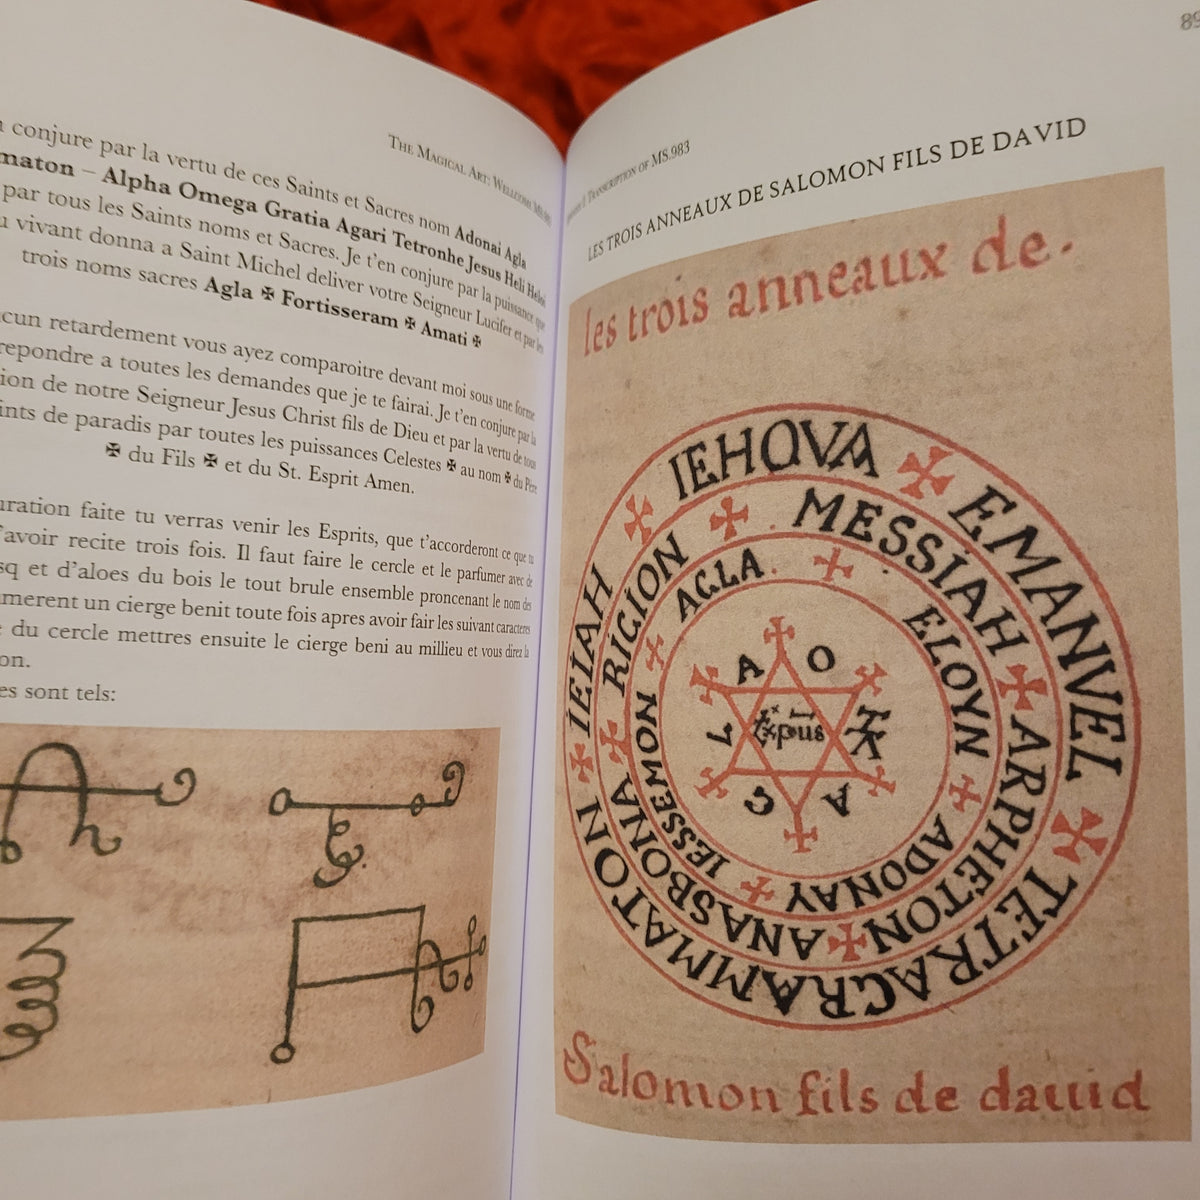 THE MAGICAL ART: WELLCOME MS.983
conjure par la vertu de ces Saints et Sacres nom Adonai Agla
maton – Alpha Omega Gratia Agari Tetronhe Jesus Heli Heloi
par tous les Saints noms et Sacres. Je t'en conjure par la puissance que
vivant donna a Saint Michel deliver votre Seigneur Lucifer et par les
trois noms sacres Agla ✠ Fortisseram ✠ Amati ✠
cun retardement vous ayez comparoitre devant moi sous une forme
repondre a toutes les demandes que je te fairai. Je t'en conjure par la
ion de notre Seigneur Jesus Christ fils de Dieu et par la vertu de tous
ints de paradis par toutes les puissances Celestes ✠ au nom ✠ du Père
✠ du Fils ✠ et du St. Esprit Amen.
uration faite tu verras venir les Esprits, que t'accorderont ce que tu
'avoir recite trois fois. Il faut faire le cercle et le parfumer avec de
sq et d'aloes du bois le tout brule ensemble proncenant le nom des
merent un cierge benit toute fois apres avoir fair les suivant caracteres
du cercle mettres ensuite le cierge beni au millieu et vous direz la
on.
es sont tels:
89
TRANSCRIPTION OF MS.983
LES TROIS ANNEAUX DE SALOMON FILS DE DAVID
les trois anneaux de.
IEHOVA ✠ EMANVEL ✠ TETRAGRAMMATON ✠ IEIAH ✠
MESSIAH ✠ ARPHETON ✠ ANASBONA ✠ RIGION ✠
AGLA. ✠ ELOYN ✠ ADONAY ✠ IESSEMON ✠
A O
A G L
Xpus
Salomon fils de dauid